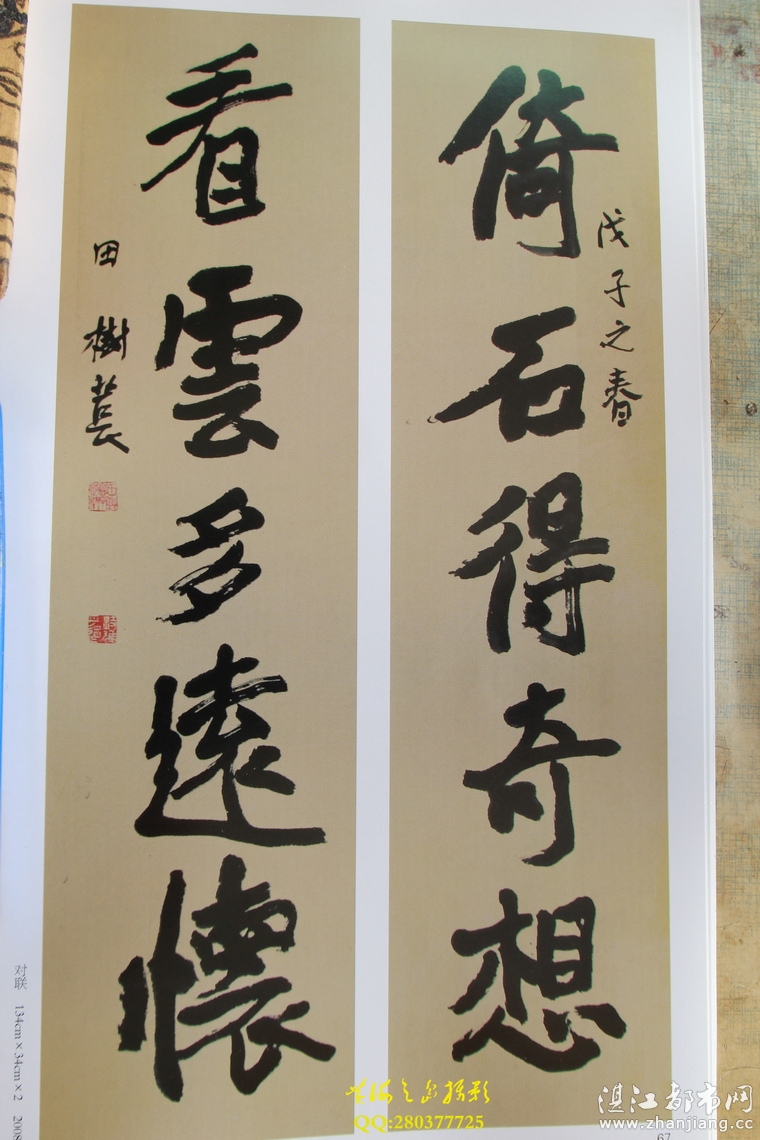 倚石得奇想
戊子之春
看雲多遠懷
田樹萇
对联 134cm×34cm×2 2008
67
QQ:280377725
湛江都市网
www.zhanjiang.cc